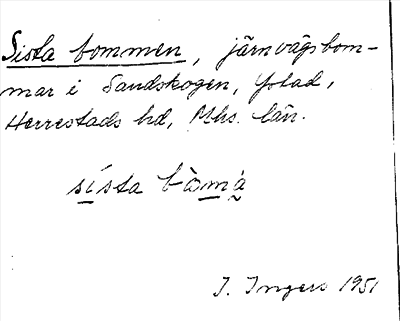 Sista bommen, järnvägsbom-
mar i Sandskogen, Ystad,
Herrestads hd, Mhs. län.
sísta bòmå̀
I. Ingers 1951